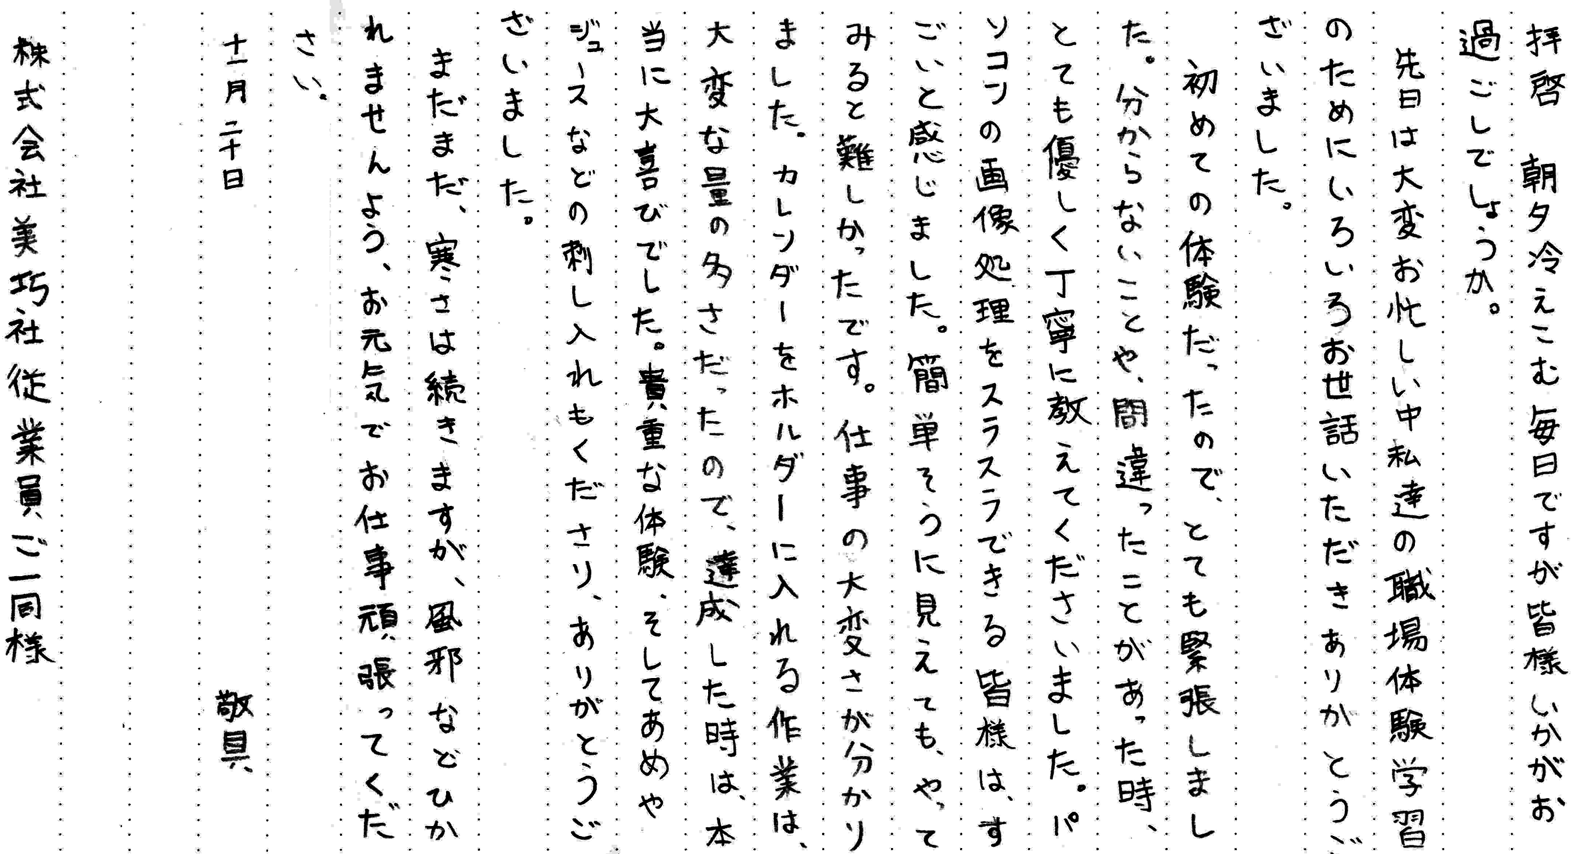 拝啓　朝夕冷えこむ毎日ですが皆様いかがお
過ごしでしょうか。
先日は大変お忙しい中私達の職場体験学習
のためにいろいろお世話いただきありかとうご
ざいました。
初めての体験だったので、とても緊張しまし
た。分からないことや、間違ったことがあった時、
とても優しく丁寧に教えてくださいました。パ
ソコンの画像処理をスラスラできる皆様は、す
ごいと感じました。簡単そうに見えても、やって
みると難しかったです。仕事の大変さが分かり
ました。カレンダーをホルダーに入れる作業は、
大変な量の多さだったので、達成した時は、本
当に大喜びでした。貴重な体験、そしてあめや
ジュースなどの刺し入れもくださり、ありがとうご
ざいました。
まだまだ、寒さは続きますが、風邪などひか
れませんよう、お元気でお仕事頑張ってくだ
さい。
十一月二十日　敬具
株式会社美巧社従業員ご一同様